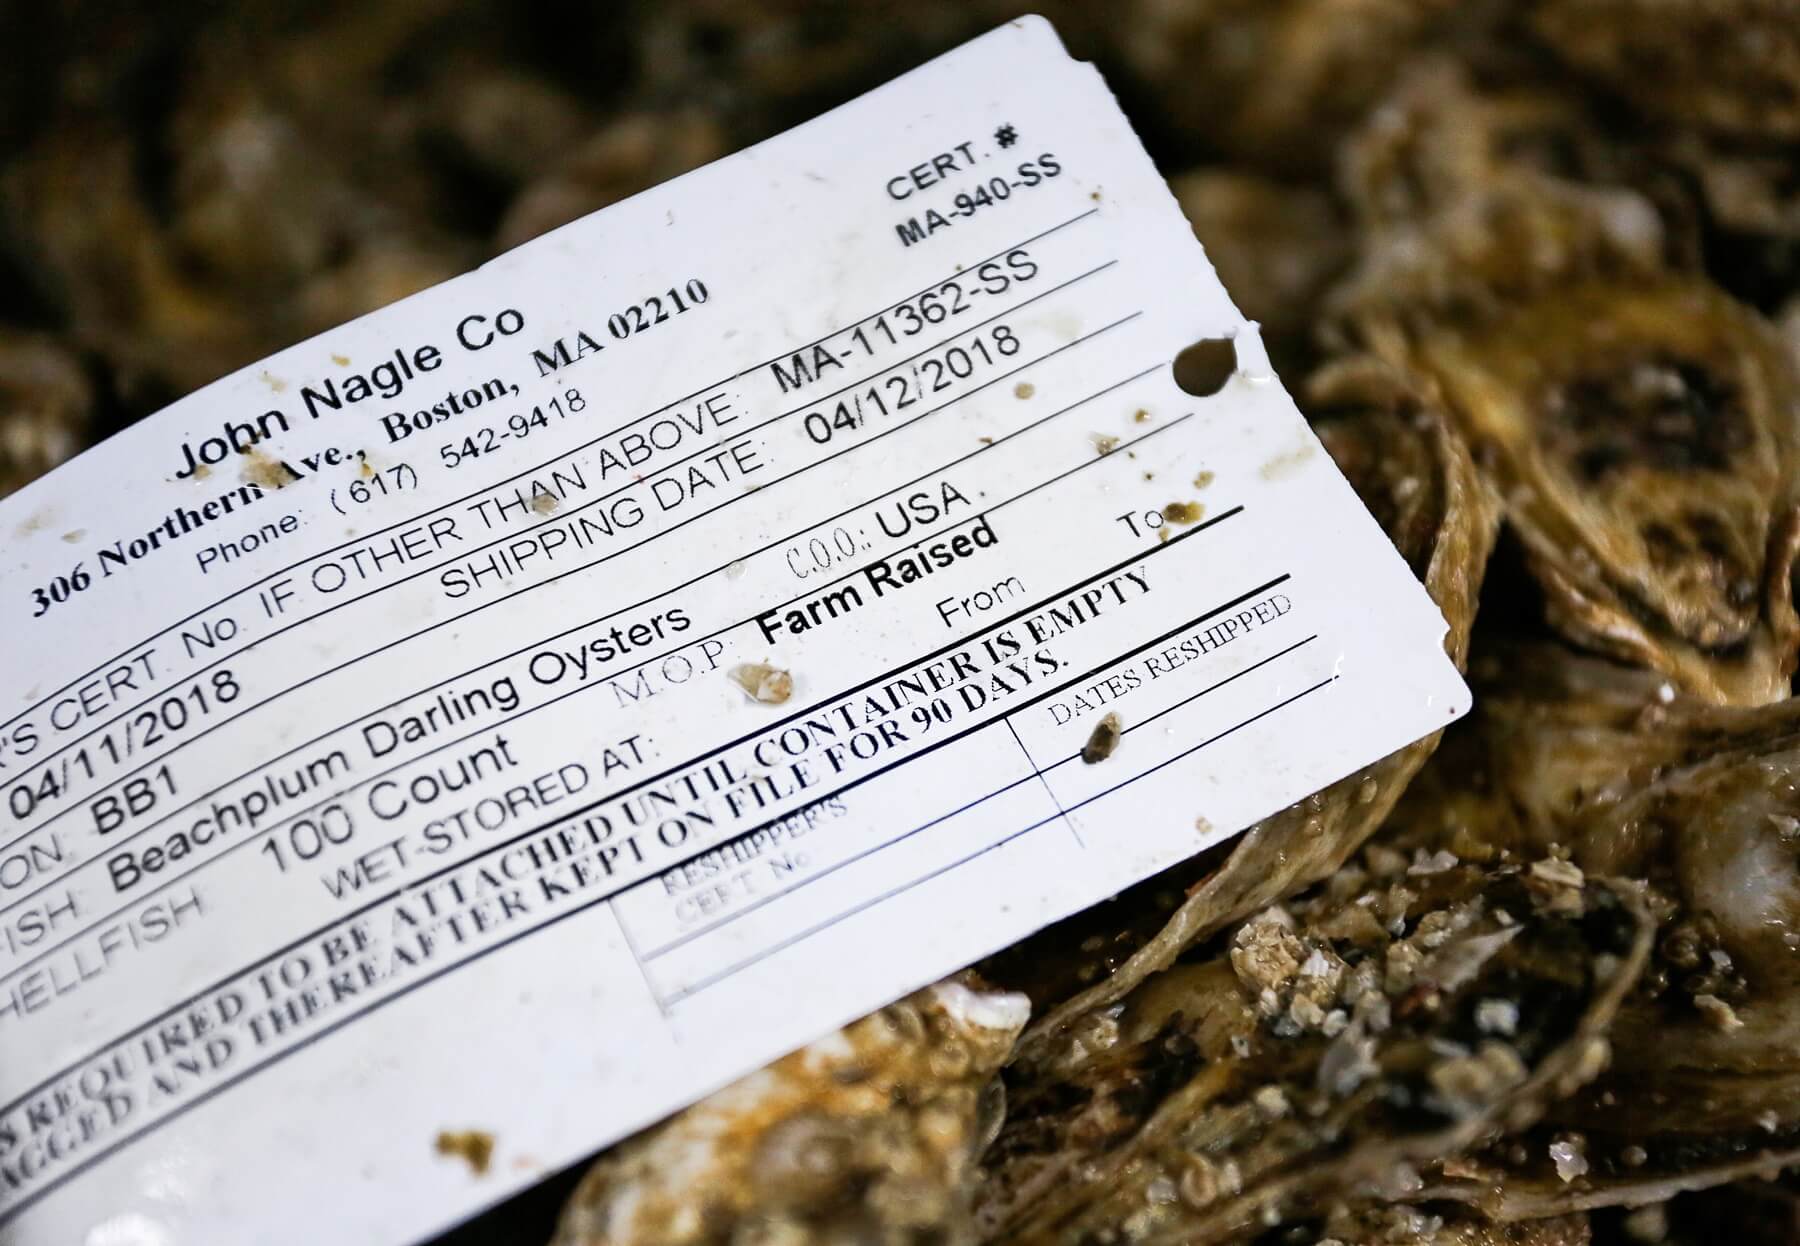 CERT. #
MA-940-SS
John Nagle Co
306 Northern Ave., Boston, MA 02210
Phone: (617) 542-9418
'S CERT. No. IF OTHER THAN ABOVE: MA-11362-SS
04/11/2018 SHIPPING DATE: 04/12/2018
ON: BB1
ISH: Beachplum Darling Oysters C.O.O.: USA
HELLFISH 100 Count M.O.P: Farm Raised
WET-STORED AT: From To
S REQUIRED TO BE ATTACHED UNTIL CONTAINER IS EMPTY
AGGED AND THEREAFTER KEPT ON FILE FOR 90 DAYS.
RESHIPPER'S DATES RESHIPPED
CERT No